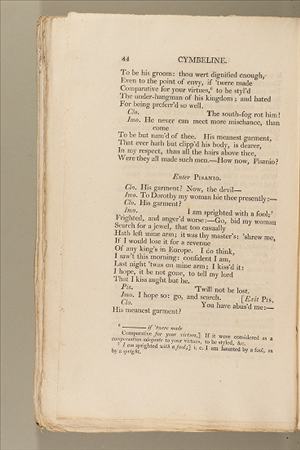 44 CYMBELINE.
To be his groom: thou wert dignified enough,
Even to the point of envy, if 'twere made
Comparative for your virtues,⁶ to be styl'd
The under-hangman of his kingdom; and hated
For being preferr'd so well.
Clo. The south-fog rot him!
Imo. He never can meet more mischance, than
come
To be but nam'd of thee. His meanest garment,
That ever hath but clipp'd his body, is dearer,
In my respect, than all the hairs above thee,
Were they all made such men.—How now, Pisanio?
Enter Pisanio.
Clo. His garment? Now, the devil—
Imo. To Dorothy my woman hie thee presently:—
Clo. His garment?
Imo. I am sprighted with a fool;⁷
Frighted, and anger'd worse:—Go, bid my woman
Search for a jewel, that too casually
Hath left mine arm; it was thy master's: 'shrew me,
If I would lose it for a revenue
Of any king's in Europe. I do think,
I saw't this morning: confident I am,
Last night 'twas on mine arm; I kiss'd it:
I hope, it be not gone, to tell my lord
That I kiss aught but he.
Pis. 'Twill not be lost.
Imo. I hope so: go, and search. [Exit Pis.
Clo. You have abus'd me:—
His meanest garment?
⁶ —— if 'twere made
Comparative for your virtues,] If it were considered as a
compensation adequate to your virtues, to be styled, &c.
⁷ I am sprighted with a fool;] i. e. I am haunted by a fool, as
by a spright.